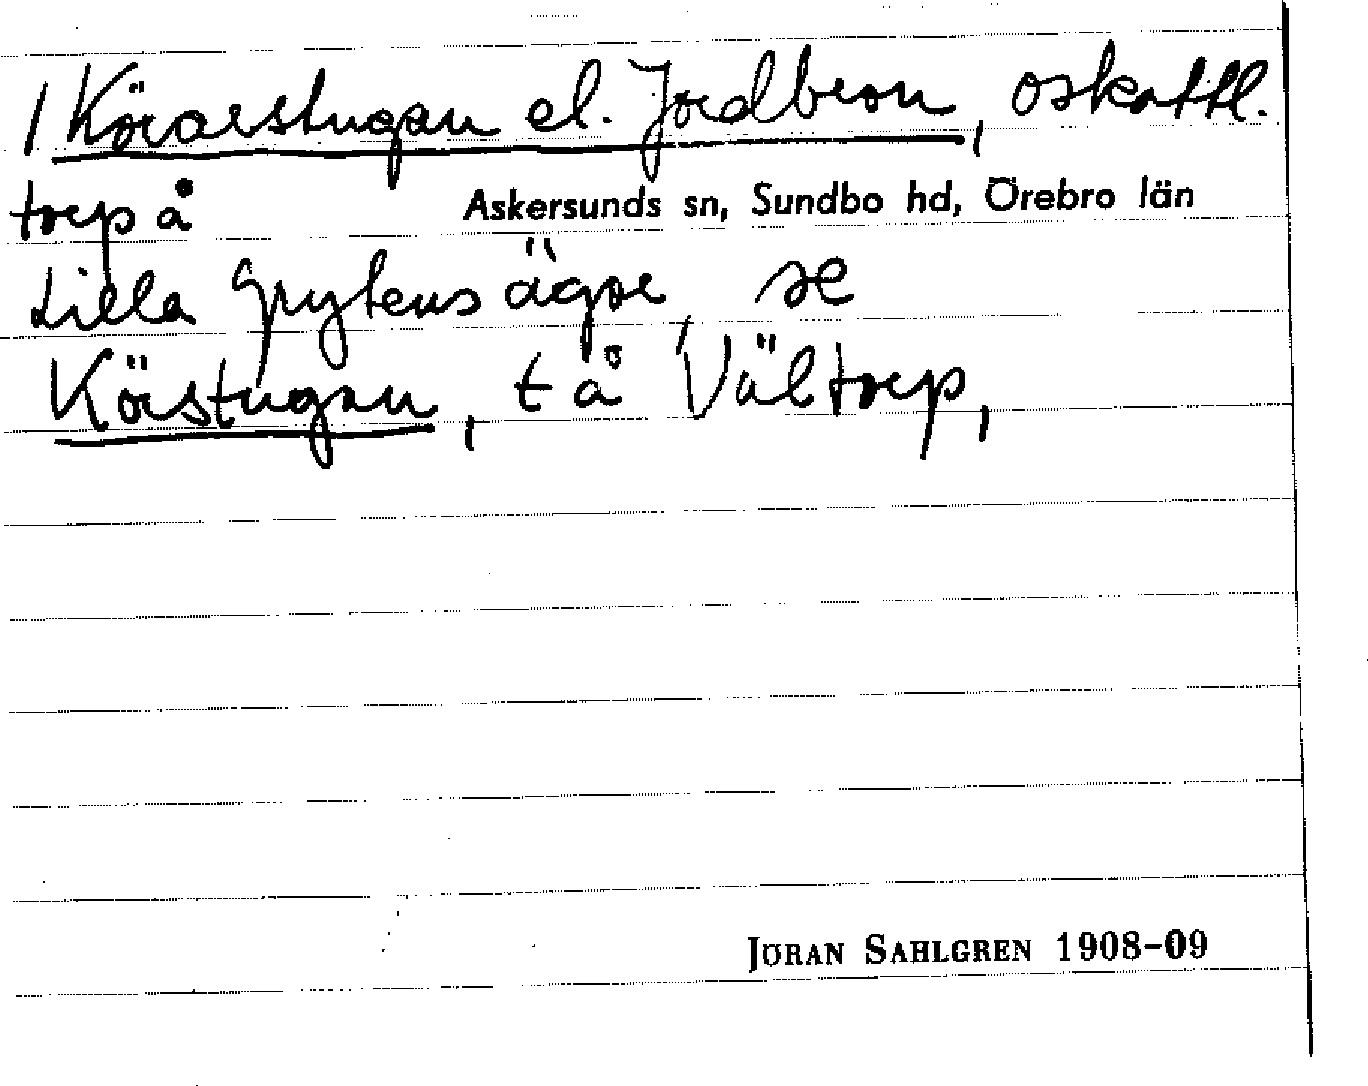 / Körarstugan el. Jordbron, oskattl.
torp å
Askersunds sn, Sundbo hd, Örebro län
Lilla Grytens ägor, se
Körstugan, t å Vältorp,
JÖRAN SAHLGREN 1908-09